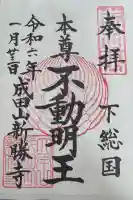 奉拝
下総国
本尊
不動明王
令和六年
一月廿三日
成田山新勝寺